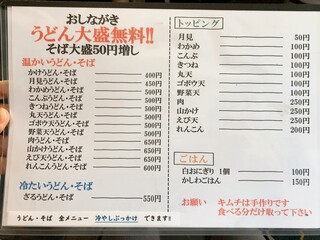 おしながき
うどん大盛無料!!
そば大盛50円増し
温かいうどん・そば
かけうどん・そば 400円
月見うどん・そば 450円
わかめうどん・そば 500円
こんぶうどん・そば 500円
きつねうどん・そば 500円
丸天うどん・そば 500円
ゴボウ天うどん・そば 500円
野菜天うどん・そば 500円
肉うどん・そば 650円
山かけうどん・そば 650円
えび天うどん・そば 650円
れんこんうどん・そば 600円
冷たいうどん・そば
ざるうどん・そば 550円
うどん・そば 全メニュー 冷やしぶっかけ できます!!
トッピング
月見 50円
わかめ 100円
こんぶ 100円
きつね 100円
丸天 100円
ゴボウ天 100円
野菜天 100円
肉 250円
山かけ 250円
えび天 250円
れんこん 200円
ごはん
白おにぎり 1個 100円
かしわごはん 150円
お願い キムチは手作りです
食べる分だけ取って下さい